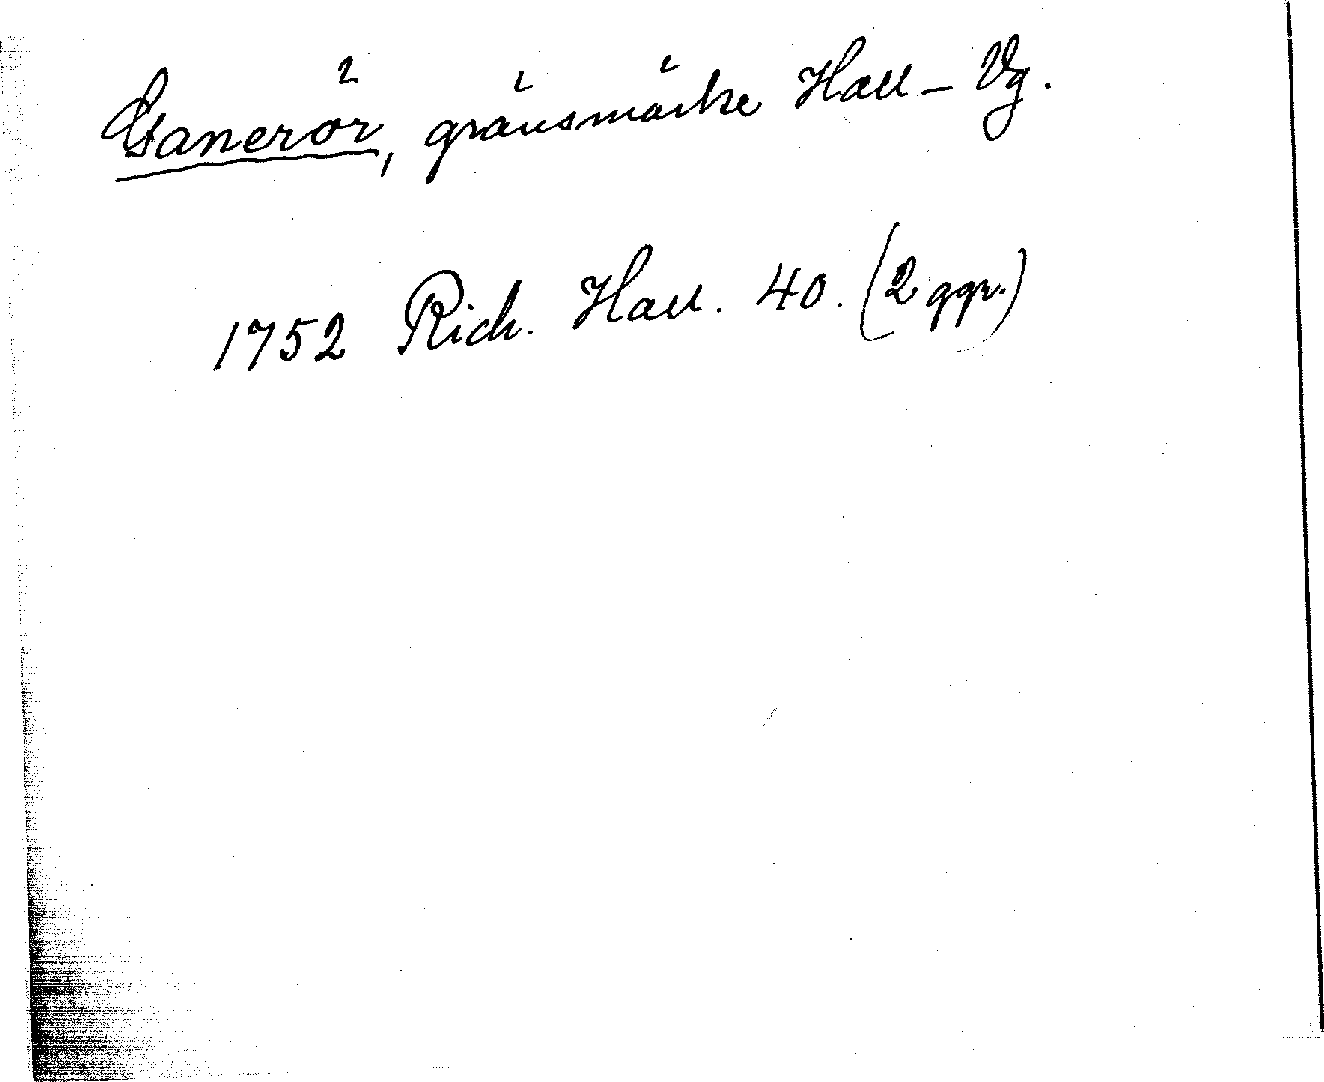 Ganerör, gränsmärke Hall – Vg.
1752 Rich. Hall. 40. (2 ggr.)